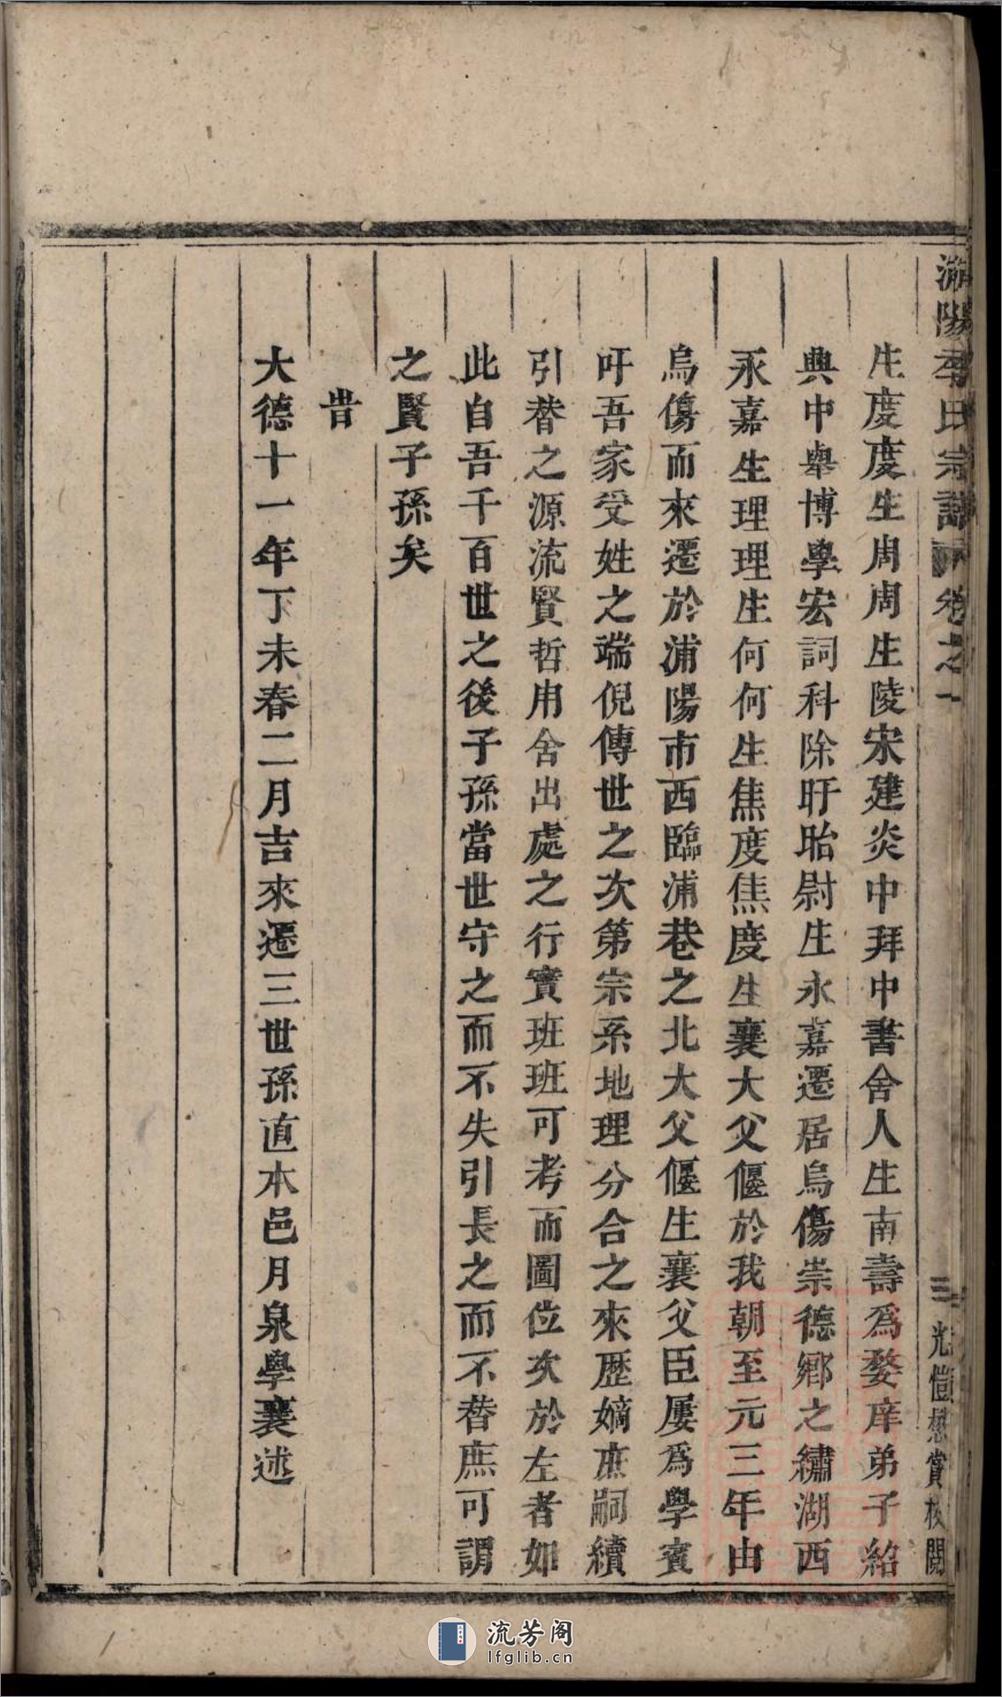 浦陽李氏宗譜 卷之一
三 光愷懋賞校閱
生度度生周周生陵宋建炎中拜中書舍人生南壽為婺庠弟子紹
興中舉博學宏詞科除盱眙尉生永嘉遷居烏傷崇德鄉之繡湖西
永嘉生理理生何何生焦度焦度生襄大父偃於我朝至元三年由
烏傷而來遷於浦陽市西臨浦巷之北大父偃生襄父臣屢為學賓
吁吾家受姓之端倪傳世之次第宗系地理分合之來歷嫡庶嗣續
引替之源流賢哲用舍出處之行實班班可考而圖位次於左者如
此自吾千百世之後子孫當世守之而不失引長之而不替庶可謂
之賢子孫矣
旹
大德十一年丁未春二月吉來遷三世孫直本邑月泉學襄述
流芳阁
lfglib.cn